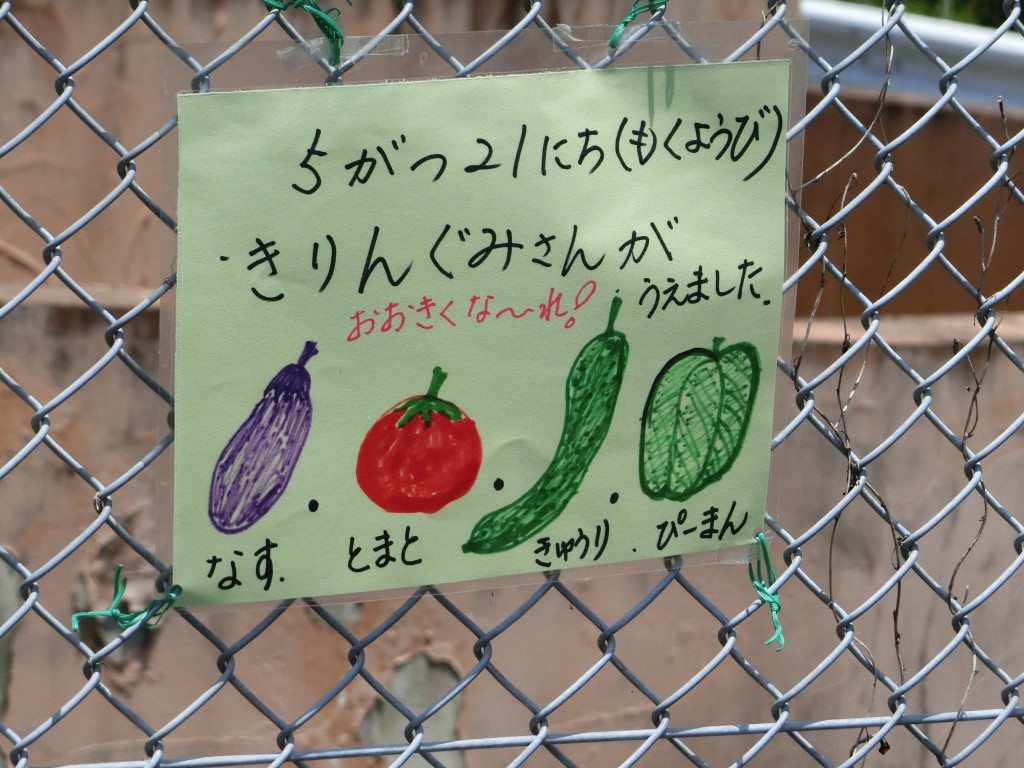 5がつ21にち(もくようび)
・きりんぐみさんが
うえました。
おおきくな〜れ!
なす.
とまと
きゅうり.
ぴーまん